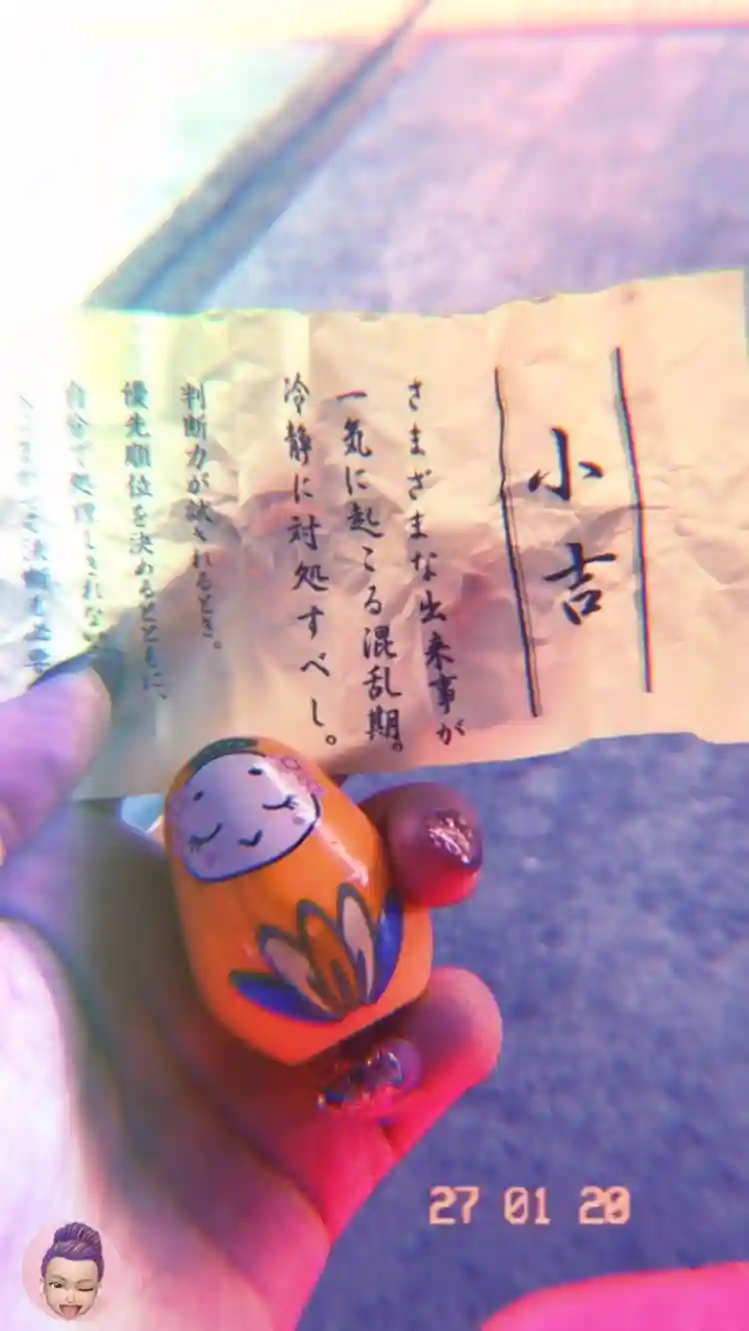 小吉
さまざまな出来事が
一気に起こる混乱期。
冷静に対処すべし。
判断力が試されるとき。
優先順位を決めるとともに、
自分で処理しきれない
27 01 20